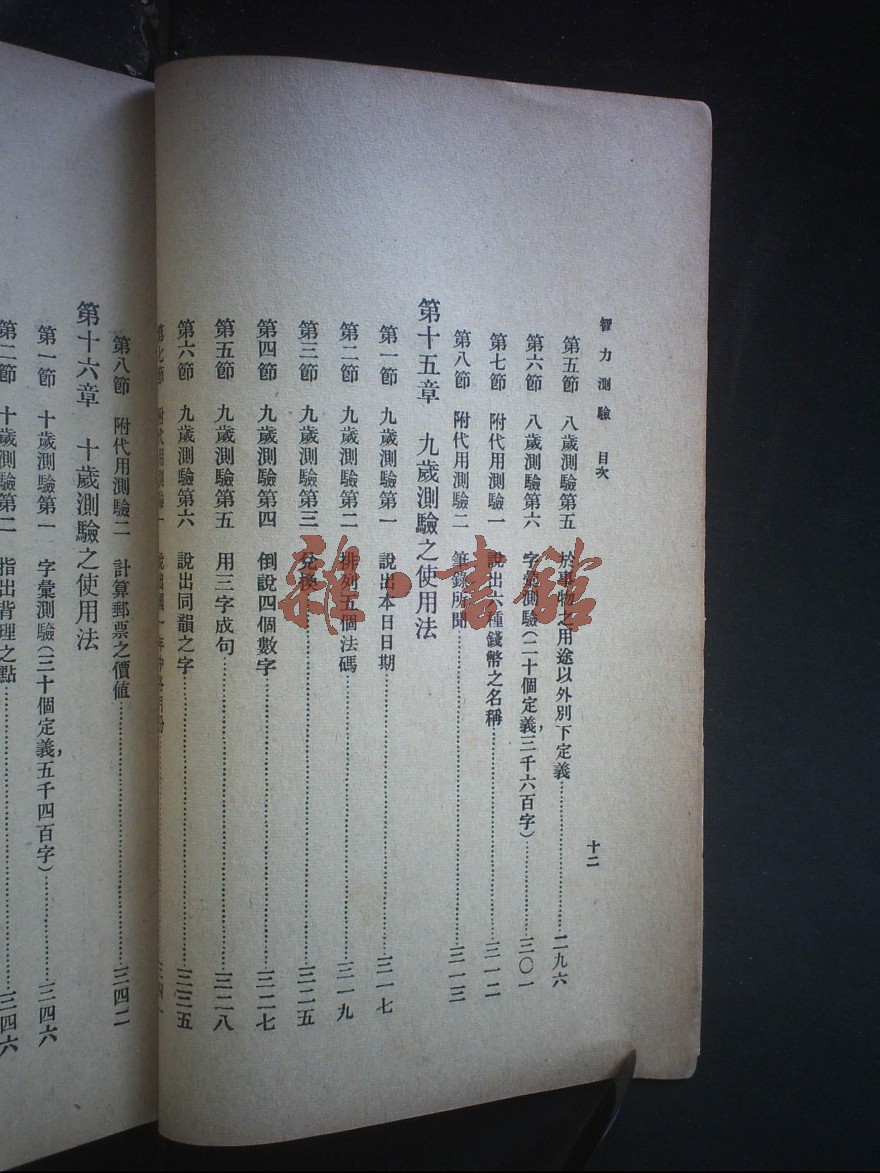 智力測驗 目次
十二
第五節 八歲測驗第五 於事物之用途以外別下定義……二九六
第六節 八歲測驗第六 字彙測驗(二十個定義,三千六百字)……三〇一
第七節 附代用測驗一 說出六種錢幣之名稱……三一二
第八節 附代用測驗二 筆錄所聞……三一三
第十五章 九歲測驗之使用法
第一節 九歲測驗第一 說出本日日期……三一七
第二節 九歲測驗第二 排列五個法碼……三一九
第三節 九歲測驗第三 兌換……三二五
第四節 九歲測驗第四 倒說四個數字……三二七
第五節 九歲測驗第五 用三字成句……三二八
第六節 九歲測驗第六 說出同韻之字……三三五
第七節 附代用測驗一 說出……三四一
第八節 附代用測驗二 計算郵票之價值……三四二
第十六章 十歲測驗之使用法
第一節 十歲測驗第一 字彙測驗(三十個定義,五千四百字)……三四六
第二節 十歲測驗第二 指出背理之點……三四六
雜·書館